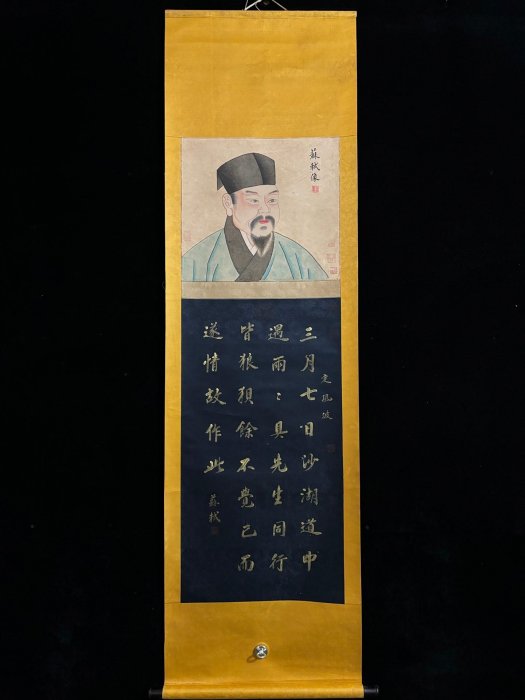 蘇軾像
定風波
三月七日沙湖道中
遇雨〻具先生同行
皆狼狽餘不覺已而
遂情故作此
蘇軾